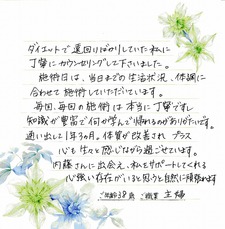 ダイエットで遠回りばかりしていた私に
丁寧にカウンセリングして下さいました。
施術日は、当日までの生活状況、体調に
合わせて施術していただいています。
毎回、毎回の施術は本当に丁寧ですし
知識が豊富で何か学んで帰れるのがありがたいです。
通い出して1年3ヶ月。体質が改善され プラス
心も生々と感じながら過ごせています。
内藤さんに出会え、私をサポートしてくれる
心強い存在がいると思うと自然に頑張れます
ご年齢 38歳 ご職業 主婦